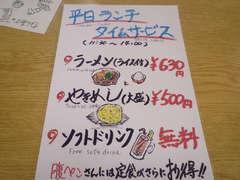 平日ランチ
タイムサービス
(11:30 ～ 14:00)
ラーメン(ライス付) ¥630
めし(大盛) ¥500
ソフトドリンク 無料
Free soft drink
さんには定食がさらにお得!!